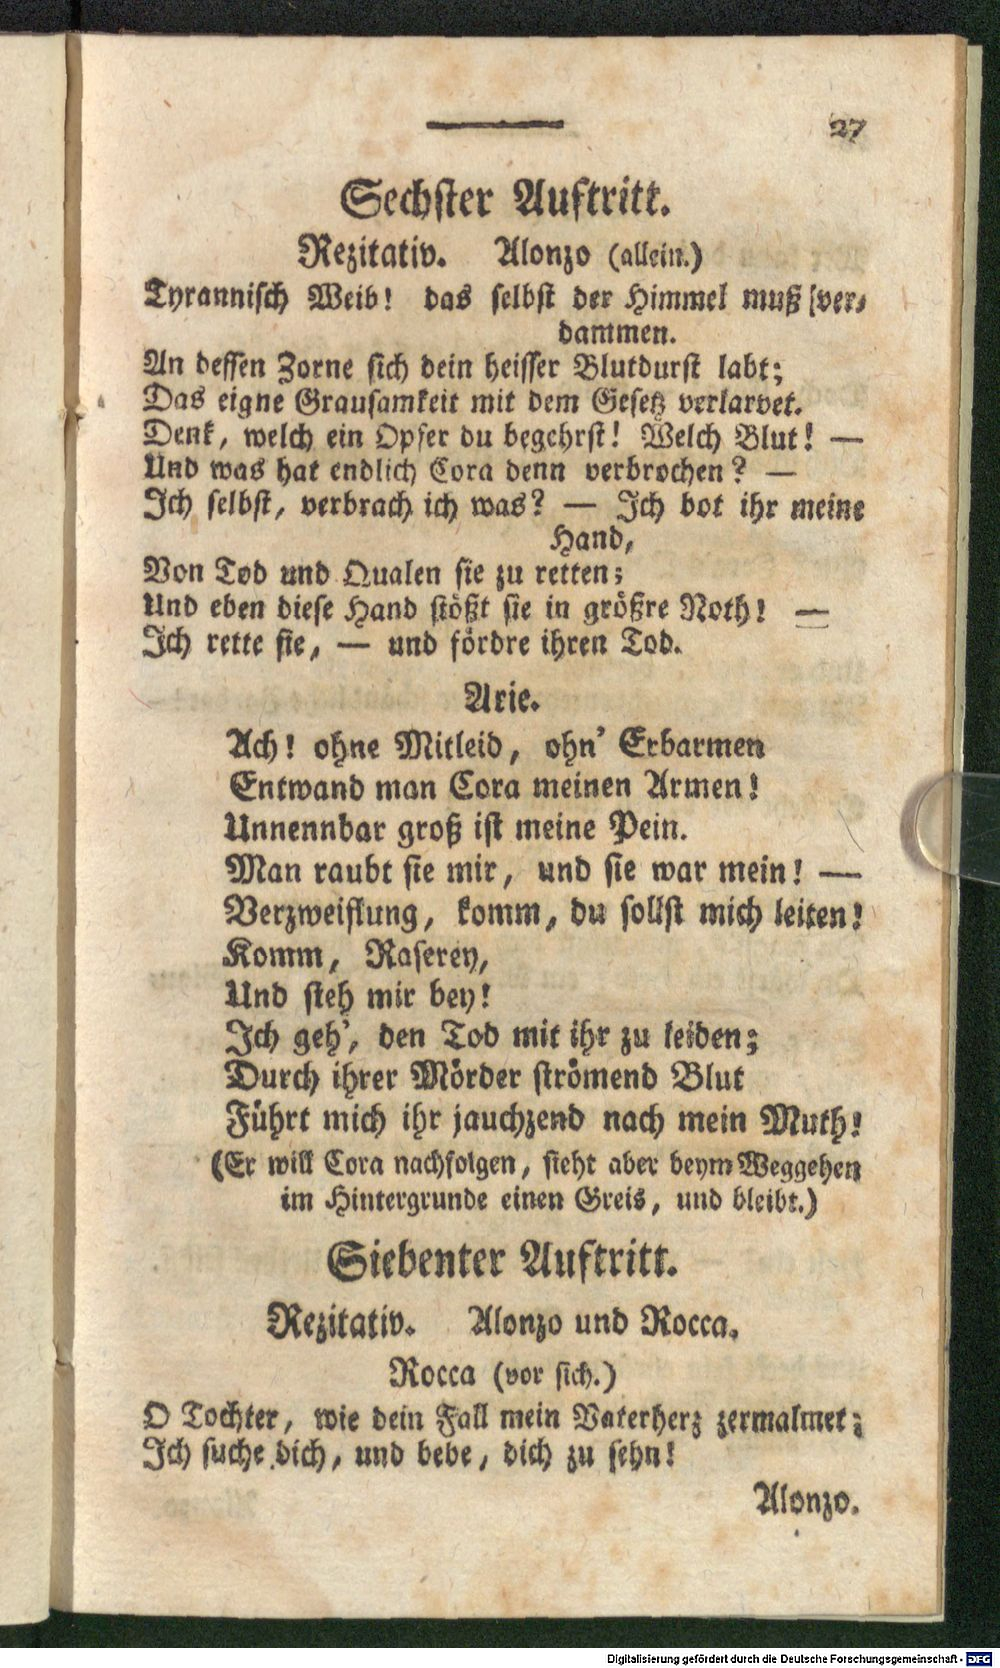 27
Sechster Auftritt.
Rezitativ. Alonzo (allein.)
Tyrannisch Weib! das selbst der Himmel muß (ver-
dammen.
An dessen Zorne sich dein heisser Blutdurst labt;
Das eigne Grausamkeit mit dem Gesetz verlarvet.
Denk, welch ein Opfer du begehrst! Welch Blut! —
Und was hat endlich Cora denn verbrochen? —
Ich selbst, verbrach ich was? — Ich bot ihr meine
Hand,
Von Tod und Qualen sie zu retten;
Und eben diese Hand stößt sie in größre Noth! —
Ich rette sie, — und fördre ihren Tod.
Arie.
Ach! ohne Mitleid, ohn' Erbarmen
Entwand man Cora meinen Armen!
Unnennbar groß ist meine Pein.
Man raubt sie mir, und sie war mein! —
Verzweiflung, komm, du sollst mich leiten!
Komm, Raserey,
Und steh mir bey!
Ich geh', den Tod mit ihr zu leiden;
Durch ihrer Mörder strömend Blut
Führt mich ihr jauchzend nach mein Muth!
(Er will Cora nachfolgen, sieht aber beym Weggehen
im Hintergrunde einen Greis, und bleibt.)
Siebenter Auftritt.
Rezitativ. Alonzo und Rocca.
Rocca (vor sich.)
O Tochter, wie dein Fall mein Vaterherz zermalmet;
Ich suche dich, und bebe, dich zu sehn!
Alonzo.
Digitalisierung gefördert durch die Deutsche Forschungsgemeinschaft - DFG